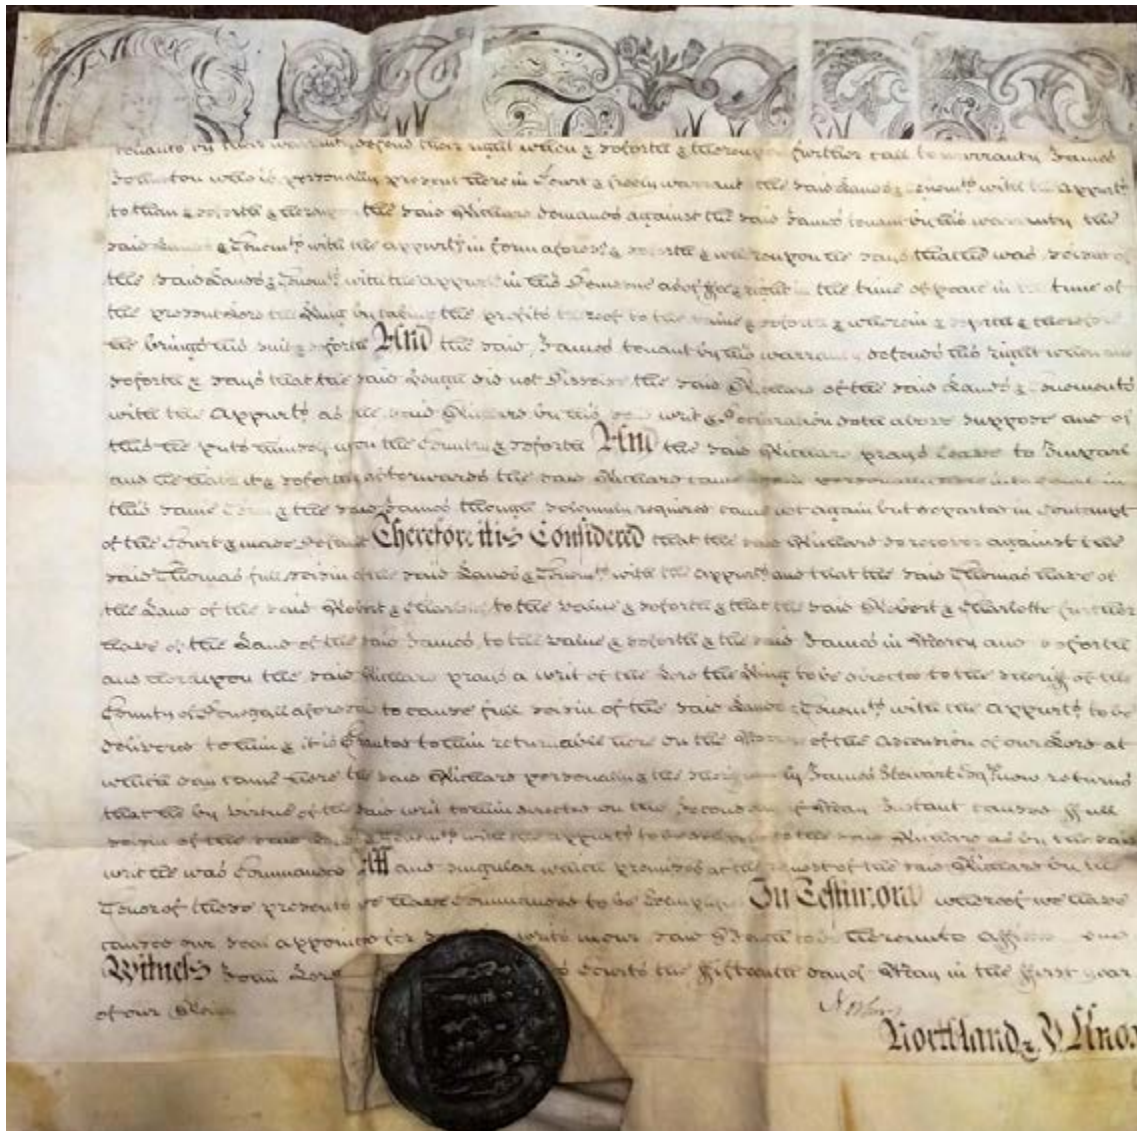 tenant by their warranty defend their right when & soforth & thereupon further call to warranty James
who is personally present here in Court & freely warrants the said Lands & Tenemts with the Appurts
to them & soforth & thereupon the said Richard demands against the said James tenant by his warranty the
said Lands & Tenemts with the Appurts in form aforesd & soforth & whereupon he says that he was seized of
the said Lands & Tenemts with the Appurts in his Demesne as of Fee & right in the time of peace in the time of
the present Lord the King by taking the profits thereof to the value & soforth & wherein & soforth & therefore
he brings his suit & soforth And the said James tenant by his warranty defends his right when and
soforth & says that the said Hough did not Disseise the said Richard of the said Lands & Tenements
with the Appurts as the said Richard by his said writ & Declaration doth above suppose and of
this he puts himself upon the Country & soforth And the said Richard prays leave to Imparl
and he hath it & soforth & afterwards the said Richard came again personally here into Court in
this same Term & the said James though solemnly required came not again but departed in Contempt
of the Court & made Default Therefore it is Considered that the said Richard do recover against the
said Thomas full seisin of the said Lands & Tenemts with the Appurts and that the said Thomas have of
the Land of the said Robert & Charlotte to the value & soforth & that the said Robert & Charlotte further
have of the Land of the said James to the value & soforth & the said James in Mercy and soforth
and thereupon the said Richard prays a writ of the Lord the King to be directed to the Sheriff of the
County of Donegall aforesd to cause full seisin of the said Lands & Tenemts with the Appurts to be
delivered to him & it is Granted to him returnable here on the Morrow of the Ascension of our Lord at
which day came here the said Richard personally & the Sheriff namely James Stewart Esqr now returns
that he by virtue of the said writ to him directed on the Second day of May Instant caused full
seisin of the said Lands & Tenemts with the appurts to be delivered to the said Richard as by the said
writ he was Commanded All and singular which premises at the request of the said Richard by the
Tenor of these presents we have Commanded to be Exemplified In Testimony whereof we have
caused our seal appointed for writs in our said Bench to be hereunto Affixed
Witness John Lord the fifteenth day of May in the first year
of our Reign
Norbury
Northland & Knox